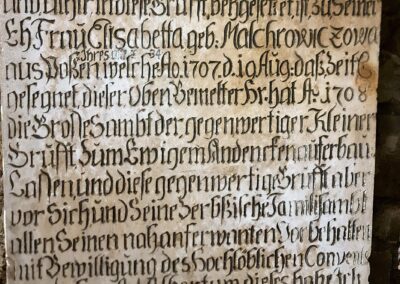 und in diese Grufft beygesetzet ist zu Seiner
Eh Frau Elisabetta geb. Malchrowiczowa
aus Poßen welche Ao. 1707. d. 19 Aug: daß Zeitl
gesegnet, dieser Oben Bemelter Hr. hat A. 1708
die Große Sambt der gegenwertiger Kleiner
Grufft Zum Ewigem Andencken auferbau
Lassen und diese gegenwertige Grufft aber
vor Sich und Seine Familje sambt
allen Seinen nah anferwanten Vorbehalten
mit Bewilligung des Hochlöblichen Convents
dieses habe Ich